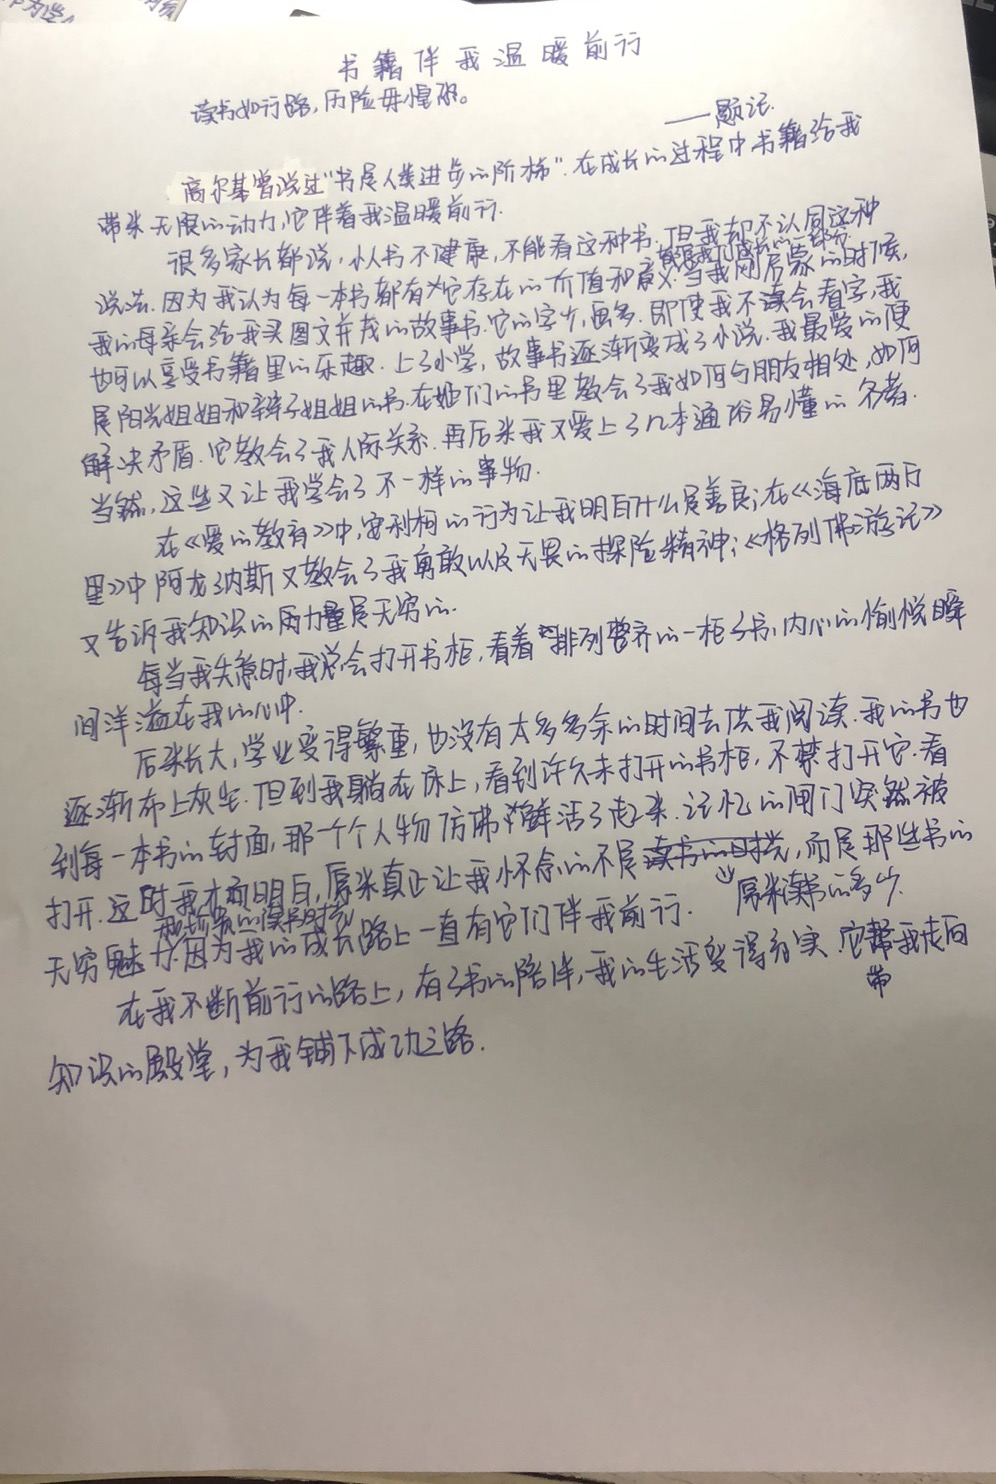 书籍伴我温暖前行
读书如行路，历险毋惶恐。
——题记
高尔基曾说过"书是人类进步的阶梯".在成长的过程中书籍给我
带来无限的动力,它伴着我温暖前行.
很多家长都说,小人书不健康,不能看这种书.但我却不认同这种
都是我们成长的一部分
说法.因为我认为每一本书都有它存在的价值和意义.当我刚启蒙的时候,
我的母亲会给我买图文并茂的故事书.它的字少,画多.即使我不会看字,我
也可以享受书籍里的乐趣.上了小学,故事书逐渐变成了小说.我最爱的便
是阳光姐姐和辫子姐姐的书.在她们的书里教会了我如何与朋友相处,如何
解决矛盾.它教会了我人际关系.再后来我又爱上了几本通俗易懂的名著.
当然,这些又让我学会了不一样的事物.
在《爱的教育》中,安利柯的行为让我明白什么是善良;在《海底两万
里》中阿龙纳斯又教会了我勇敢以及无畏的探险精神;《格列佛游记》
又告诉我知识的力量是无穷的.
每当我失意时,我总会打开书柜,看着排列整齐的一柜子书,内心的愉悦瞬
间洋溢在我的心中.
后来长大,学业变得繁重,也没有太多多余的时间去供我阅读.我的书也
逐渐布上灰尘.但到我躺在床上,看到许久未打开的书柜,不禁打开它.看
到每一本书的封面,那一个个人物仿佛鲜活了起来.记忆的闸门突然被
打开.这时我才明白,原来真正让我怀念的不是读书的时光,而是那些书的
原来读书的多少
无穷魅力.因为我的成长路上一直有它们伴我前行.
在我不断前行的路上,有了书的陪伴,我的生活变得充实.它帮我走向
带
知识的殿堂,为我铺下成功之路.